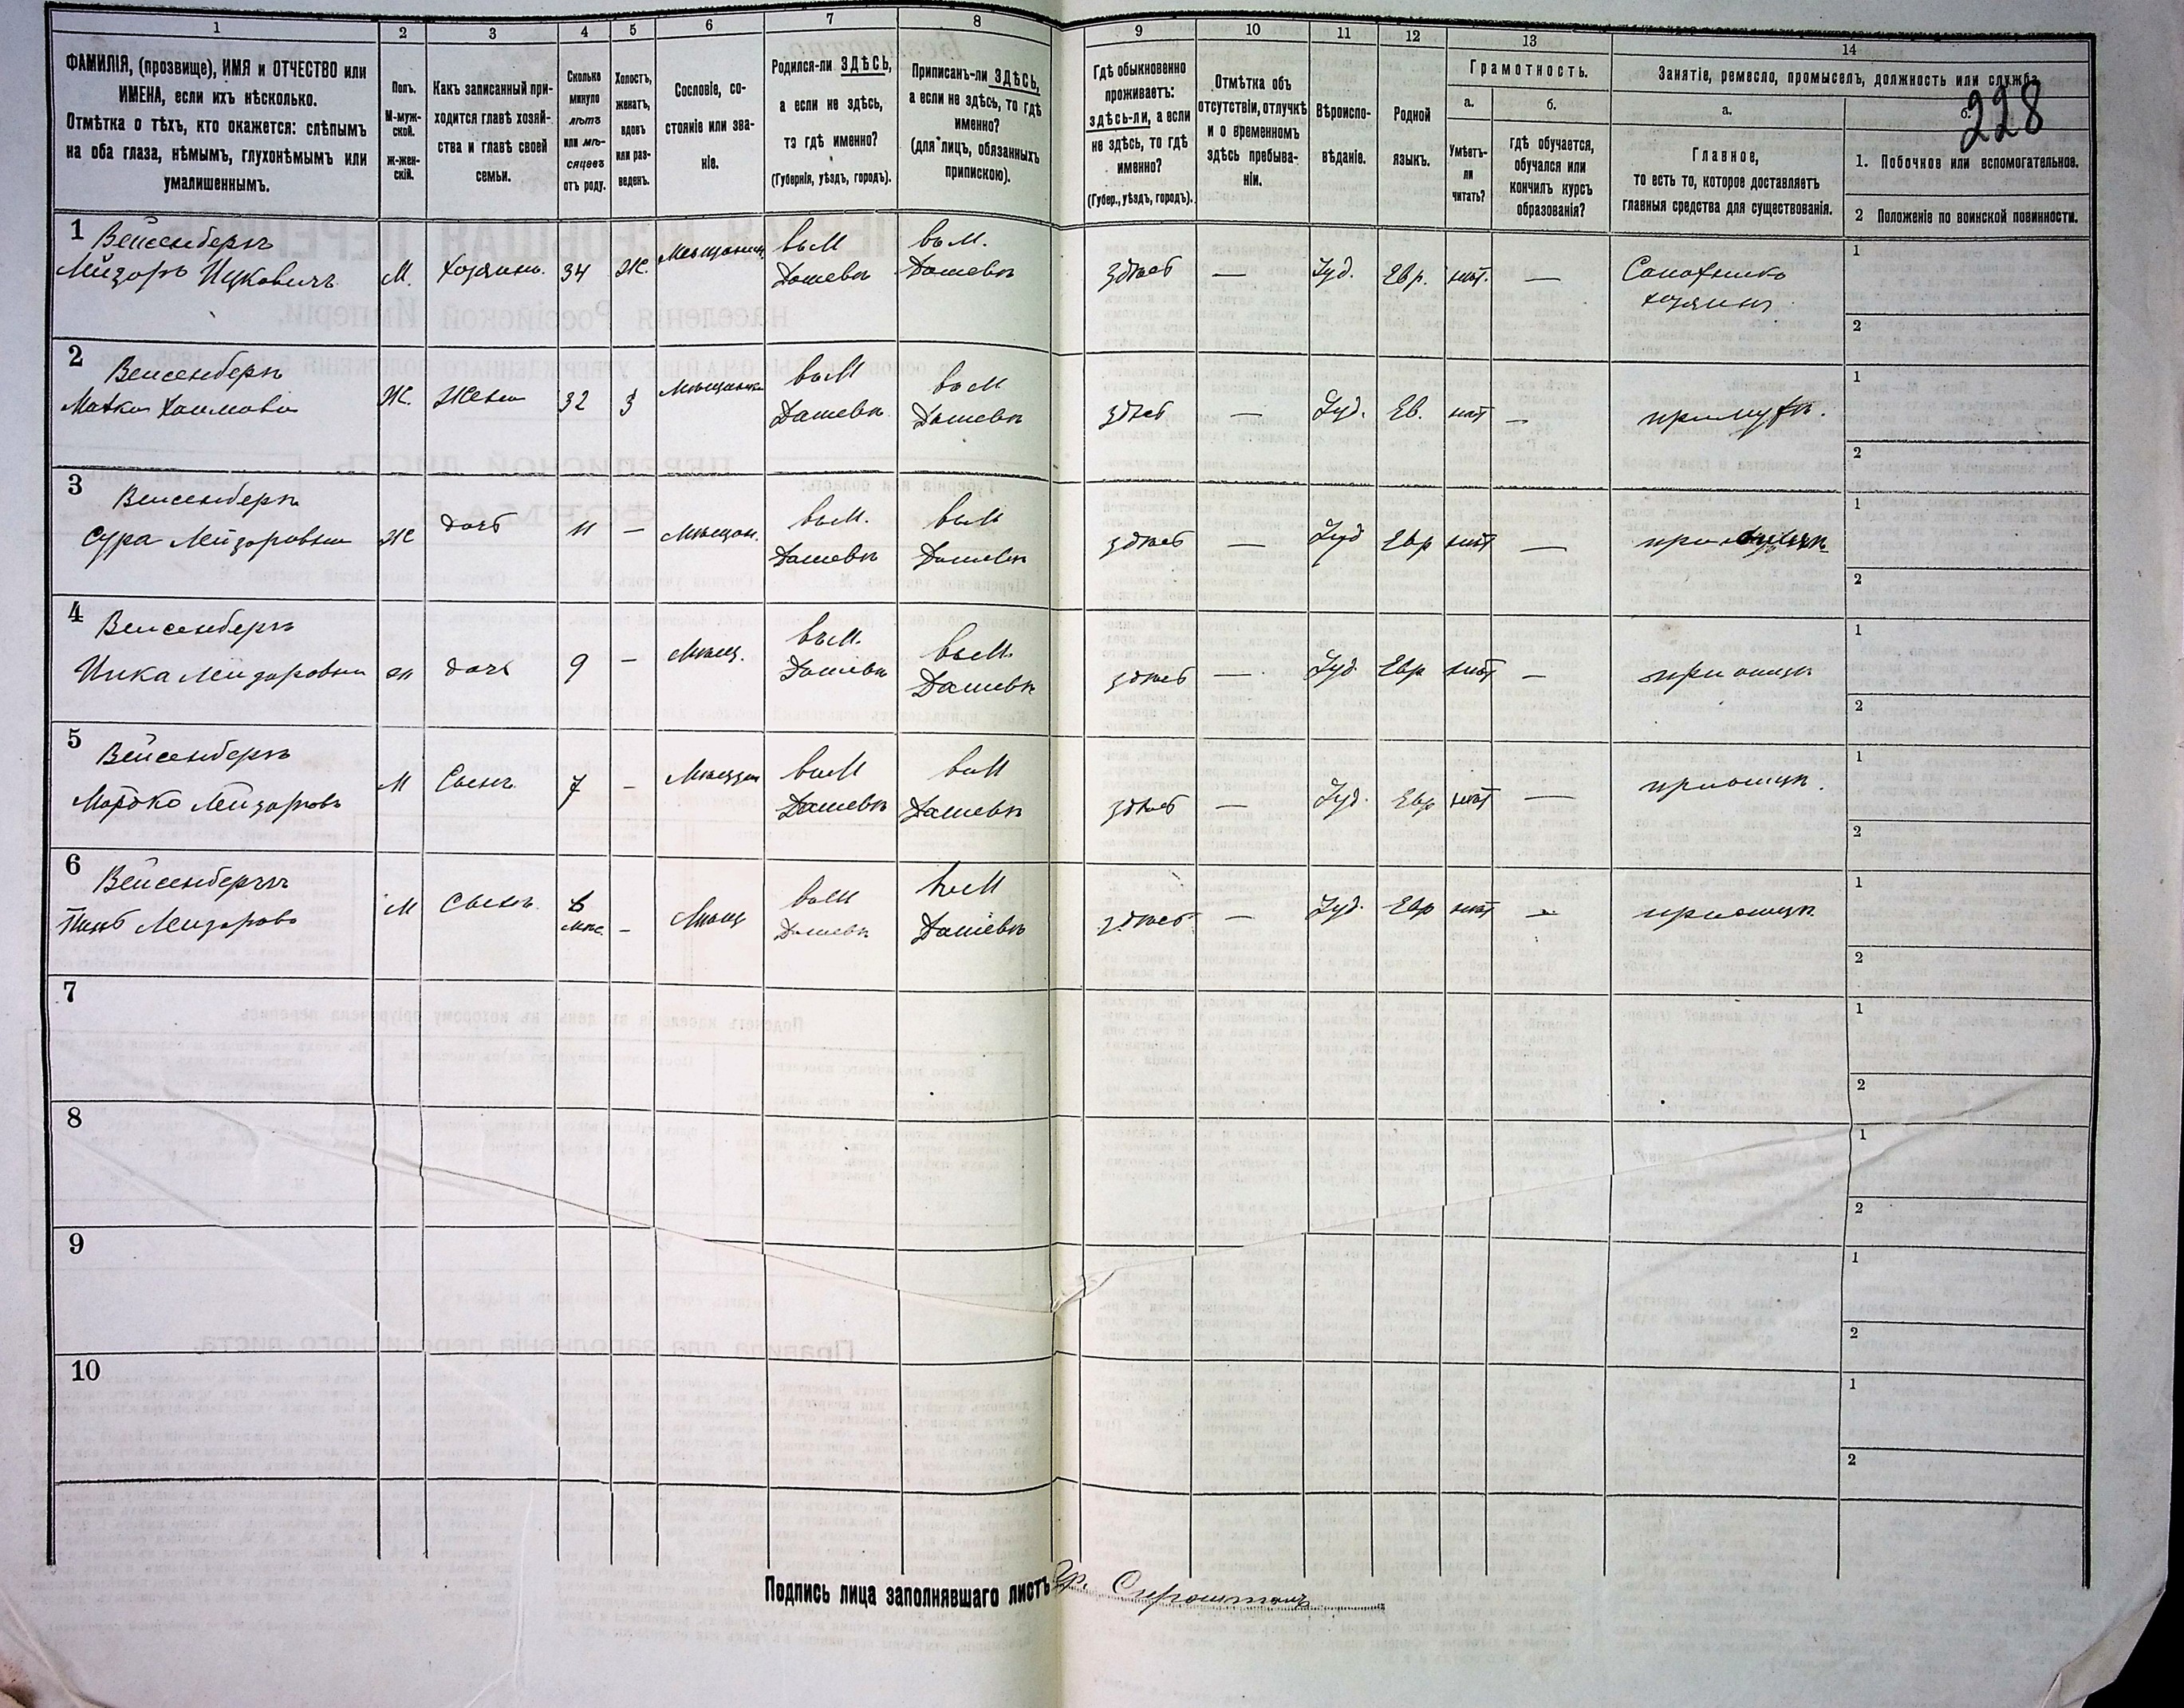 1 2 3 4 5 6 7 8 9 10 11 12 13 14
ФАМИЛІЯ, (прозвище), ИМЯ и ОТЧЕСТВО или
ИМЕНА, если ихъ нѣсколько.
Отмѣтка о тѣхъ, кто окажется: слѣпымъ
на оба глаза, нѣмымъ, глухонѣмымъ или
умалишеннымъ.
Полъ.
М-муж-
ской.
ж-жен-
скій.
Какъ записанный при-
ходится главѣ хозяй-
ства и главѣ своей
семьи.
Сколько
минуло
лѣтъ
или мѣ-
сяцевъ
отъ роду.
Холостъ,
женатъ,
вдовъ
или раз-
веденъ.
Сословіе, со-
стояніе или зва-
ніе.
Родился-ли ЗДѢСЬ,
а если не здѣсь,
то гдѣ именно?
(Губернія, уѣздъ, городъ).
Приписанъ-ли ЗДѢСЬ,
а если не здѣсь, то гдѣ
именно?
(для лицъ, обязанныхъ
припискою).
Гдѣ обыкновенно
проживаетъ:
здѣсь-ли, а если
не здѣсь, то гдѣ
именно?
(Губер., уѣздъ, городъ).
Отмѣтка объ
отсутствіи, отлучкѣ
и о временномъ
здѣсь пребыва-
ніи.
Вѣроиспо-
вѣданіе.
Родной
языкъ.
Грамотность.
а.
Умѣетъ-
ли
читать?
б.
гдѣ обучается,
обучался или
кончилъ курсъ
образованія?
Занятіе, ремесло, промыселъ, должность или служба.
228
а.
Главное,
то есть то, которое доставляетъ
главныя средства для существованія.
б.
1. Побочное или вспомогательное.
2 Положеніе по воинской повинности.
1 Вейсенбергъ
Лейзоръ Ицковичъ М. Хозяинъ. 34 Ж. Мѣщанинъ въ М Дашевѣ въ М. Дашевѣ здѣсь — Іуд. Евр. нѣт. — Сапожника
хозяинъ
1
2
2 Вейсенберг
Хаимова Ж. Жена 32 З Мѣщанка въ М Дашевѣ въ М Дашевѣ здѣс — Іуд. Ев. нѣт — при мужѣ.
1
2
3 Вейсенберг
Сура Лейзоровна Ж дочь 11 — Мѣщан. въ М. Дашевѣ въ М Дашевѣ здѣсь — Іуд Евр нѣт —
1
2
4 Вейсенбергъ
Лейзоровна дочь 9 — Мѣщ. въ М. Дашевѣ въ М. Дашевѣ здѣсь — Іуд. Евр нѣт — при отцѣ
1
2
5 Вейсенбергъ
Мордко Лейзоровъ М Сынъ 7 — въ М Дашевѣ въ М Дашевѣ здѣсь — Іуд. Евр нѣт — при отцѣ.
1
2
6 Вейсенбергъ
Лейзоровъ М Сынъ. мѣс. — Мѣщ въ М Дашевѣ въ М Дашевѣ здѣсь — Іуд. Евр нѣт — при отцѣ
1
2
7
1
2
8
1
2
9
1
2
10
1
2
Подпись лица заполнявшаго листъ